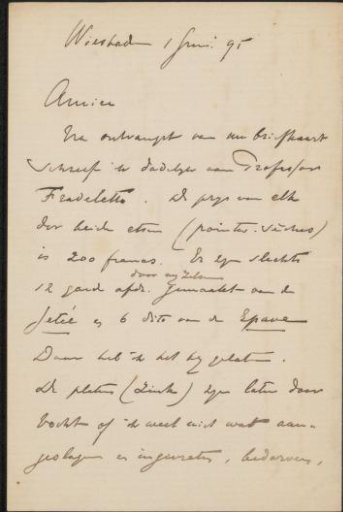 Wiesbaden 1 Juni. 95
Amice
Na ontvangst van uw briefkaart
schreef ik dadelijk aan Professor
Fradeletto. De prijs van elk
der beide etsen (pointes-sèches)
is 200 francs. Er zijn slechts
door mij zelven
12 goede afdr. gemaakt van de
Jetée en 6 dito van de Epave
Daar heb ik het bij gelaten.
De platen (Zink) zijn later door
vocht of ik weet niet wat aan-
geslagen en ingevreten, bedorven,